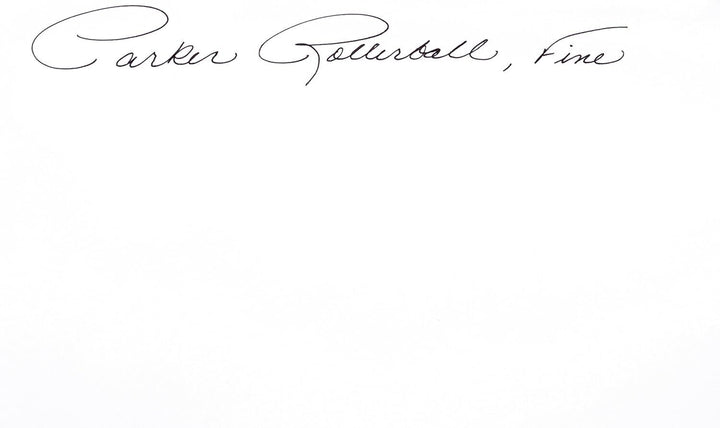 Parker Rollerball, Fine